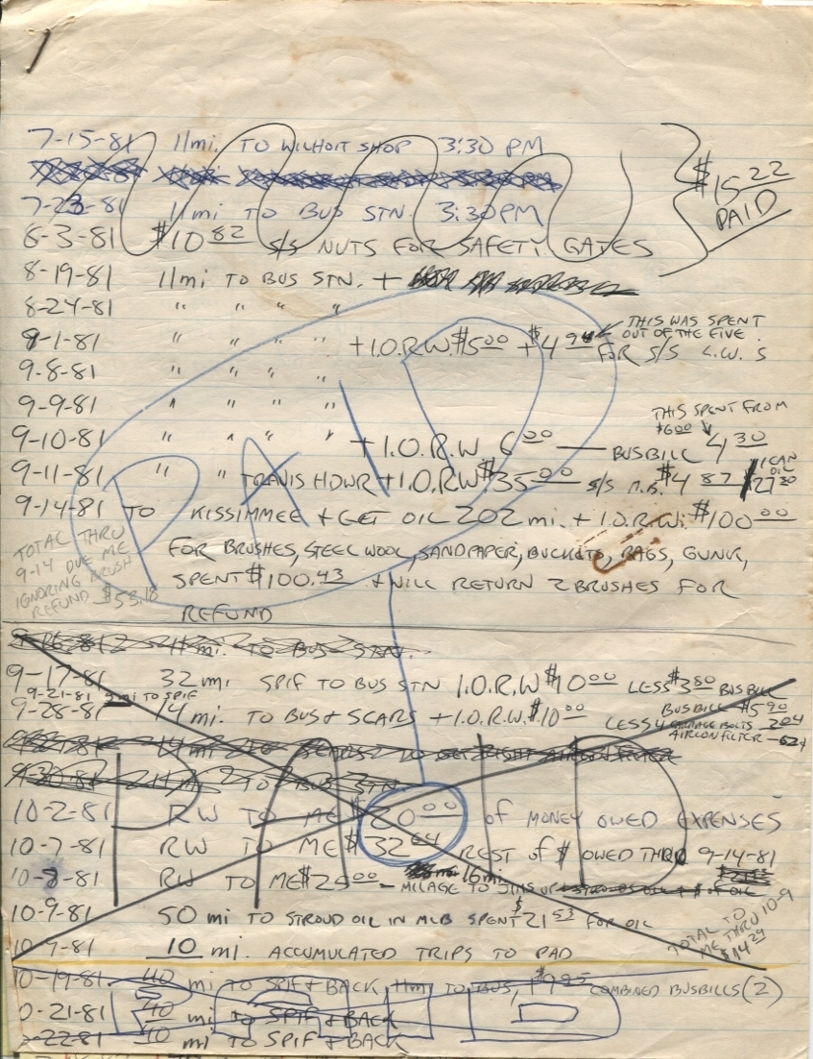 7-15-81 11mi. TO WILHOIT SHOP 3:30 PM
7-23-81 11mi TO BUS STN. 3:30PM
$15.22 PAID
8-3-81 $10.82 S/S NUTS FOR SAFETY GATES
8-19-81 11mi TO BUS STN. +
8-24-81 " " " "
9-1-81 " " " " + I.O.R.W. $5.00 + $4.94 FOR S/S L.W.'S
THIS WAS SPENT OUT OF THE FIVE
9-8-81 " " " "
9-9-81 " " " "
9-10-81 " " " " + I.O.R.W. 6.00 — BUSBILL 4.30
THIS SPENT FROM $6.00
9-11-81 " " " TRAVIS HDWR + I.O.R.W. $35.00 S/S $4.87
1 CAN OIL
9-14-81 TO KISSIMMEE + GET OIL 202 mi. + I.O.R.W. $100.00
FOR BRUSHES, STEEL WOOL, SANDPAPER, BUCKETS, RAGS, GUNK,
SPENT $100.43 + WILL RETURN 2 BRUSHES FOR
REFUND
TOTAL THRU 9-14 DUE ME IGNORING BRUSH REFUND $53.18
PAID
9-16-81 11 mi. TO BUS STN.
9-17-81 32 mi SPIF TO BUS STN I.O.R.W $10.00 LESS $3.80 BUSBILL
9-21-81 mi TO SPIF
9-28-81 14 mi. TO BUS + SEARS + I.O.R.W. $10.00 LESS
BUSBILL $5.90
4 GARBAGE BOLTS 2.04
AIRCON FILTER — 6.24
9-30-81 11 mi TO BUS STN.
10-2-81 RW TO ME $20.00 of MONEY OWED EXPENSES
10-7-81 RW TO ME $32.64 REST of $ OWED THRU 9-14-81
10-8-81 RW TO ME $25.00 — 16mi. MILAGE TO JIMS
10-9-81 50 mi TO STROUD OIL IN MLB SPENT $21.53 FOR OIL
10-9-81 10 mi. ACCUMULATED TRIPS TO PAD
TOTAL TO ME THRU 10-9 $14.29
PAID
10-19-81 40 mi TO SPIF & BACK 11mi TO BUS, + $9.25 COMBINED BUSBILLS (2)
0-21-81 40 mi TO SPIF & BACK
-22-81 40 mi TO SPIF & BACK
PAID